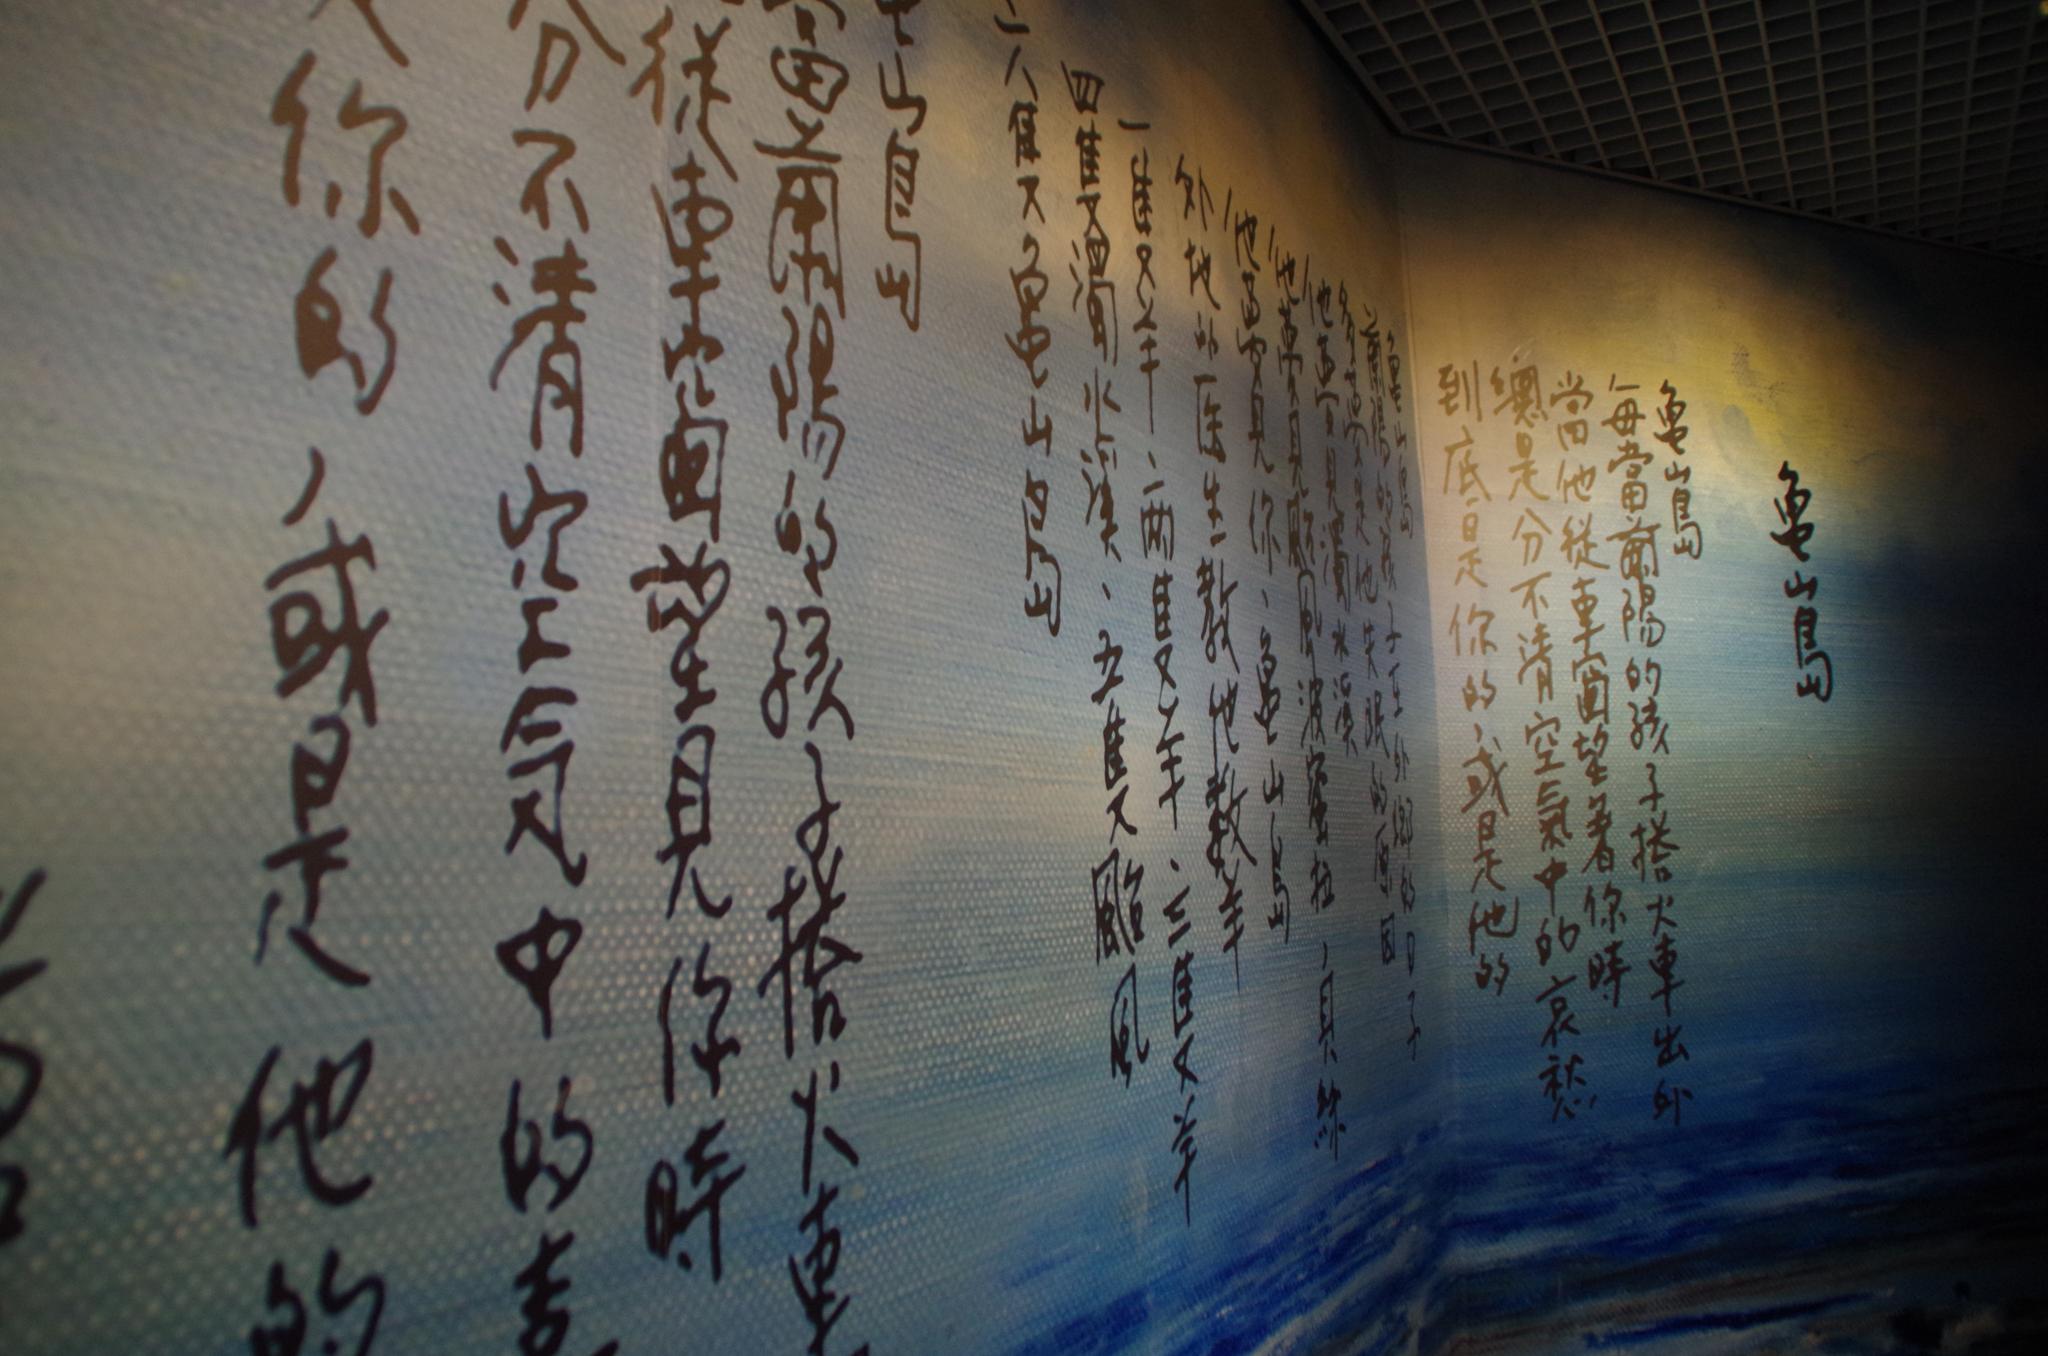 龜山島
龜山島
每當蘭陽的孩子搭火車出外
當他從車窗望著你時
總是分不清空氣中的哀愁
到底是你的、或是他的
龜山島
蘭陽的孩子在外鄉的日子
多夢是他失眠的原因
他夢見濁水溪
他夢見颱風波蜜拉、貝絲
他夢見你、龜山島
外地的醫生教他數羊
一隻羊、兩隻羊、三隻羊
四隻濁水溪、五隻颱風
六隻龜山島
山島
當蘭陽的孩子搭火車
從車窗望見你時
分不清空氣中的
你的、或是他的